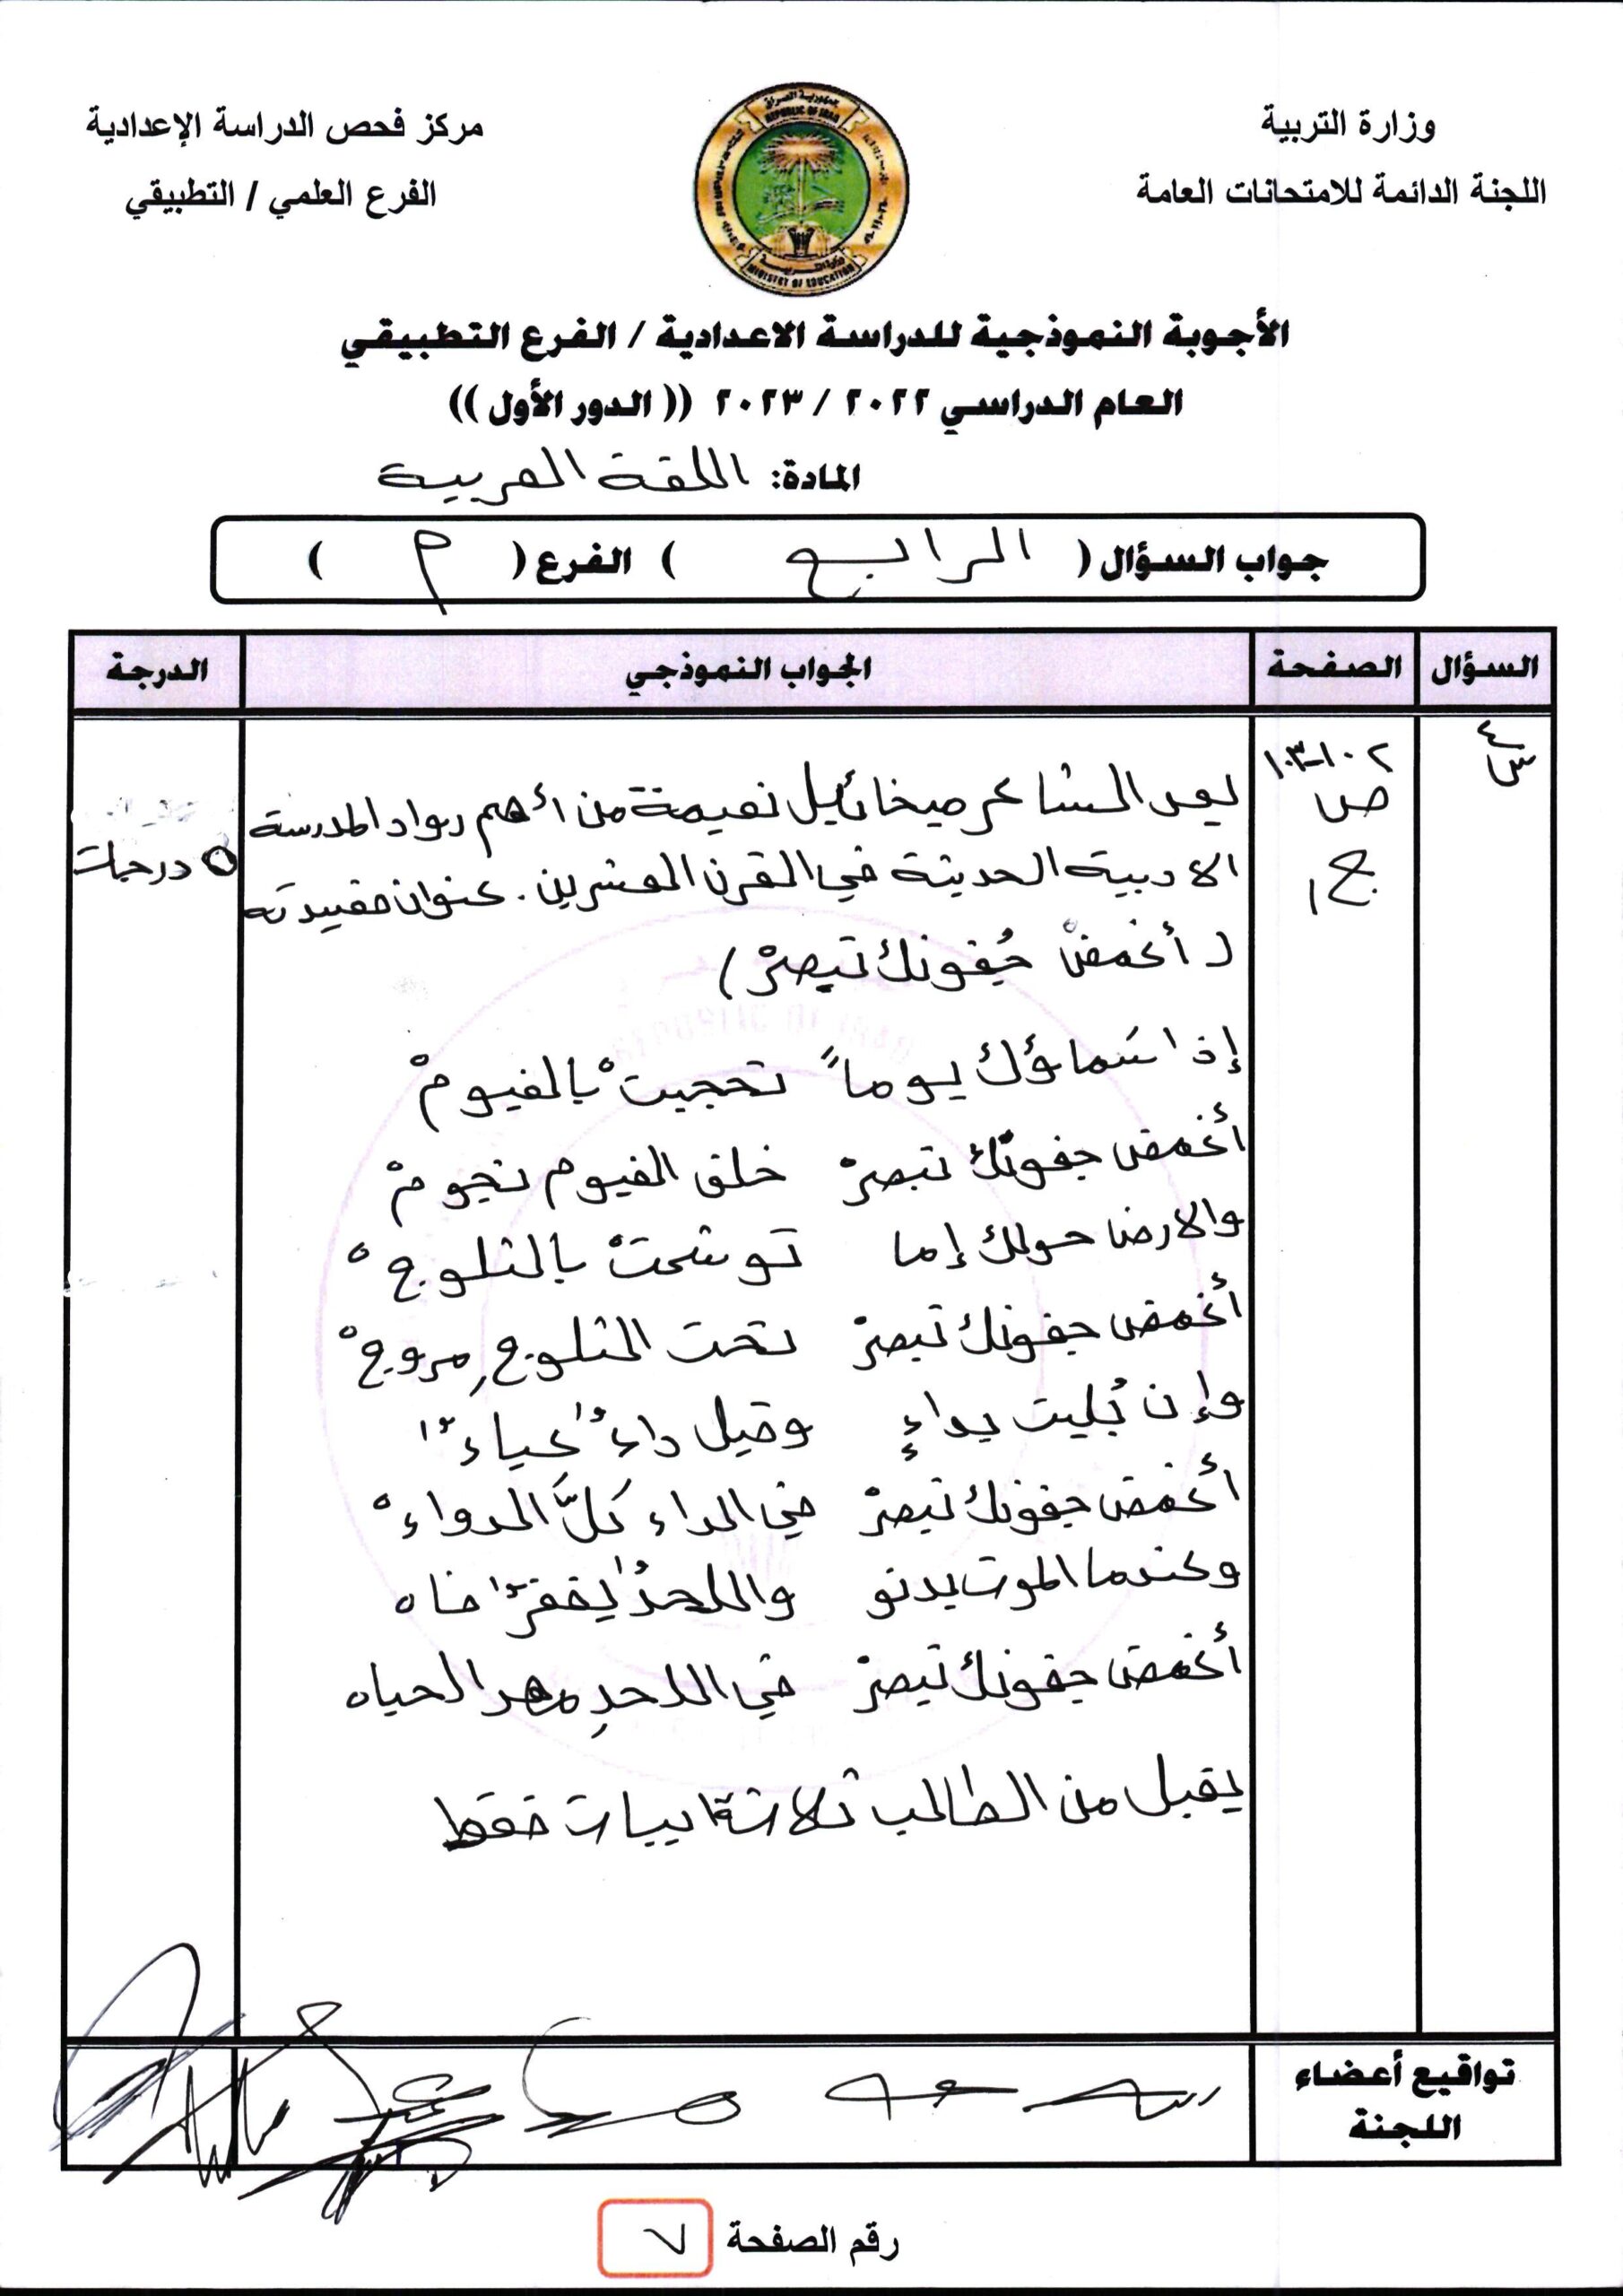 وزارة التربية
اللجنة الدائمة للامتحانات العامة
مركز فحص الدراسة الإعدادية
الفرع العلمي / التطبيقي
REPUBLIC OF IRAQ
MINISTRY OF EDUCATION
الأجوبة النموذجية للدراسة الاعدادية / الفرع التطبيقي
العام الدراسي ٢٠٢٢ / ٢٠٢٣ (( الدور الأول ))
المادة: اللغة العربية
جواب السؤال ( الرابع ) الفرع ( م )
السؤال الصفحة الجواب النموذجي الدرجة
س٤
١٠٢-١٠٣
ص
ج١
يعد الشاعر ميخائيل نعيمة من أهم رواد المدرسة
الادبية الحديثة في القرن العشرين. عنوان قصيدته
( أغمضْ جُفونك تبصرْ )
٥ درجات
إذا سَماؤك يوماً تحجبتْ بالغيومْ
أغمض جفونك تبصرْ خلق الغيوم نجومْ
والارض حولك إما توشحتْ بالثلوجْ
أغمض جفونك تبصرْ تحت الثلوج مروجْ
وإن بُليت بداءٍ وقيل داءٌ عياءْ
أغمض جفونك تبصرْ في الداء كلَّ الدواءْ
وعندما الموت يدنو واللحدُ يفغرُ فاه
أغمض جفونك تبصرْ في اللحدِ مهد الحياه
يقبل من الطالب ثلاثة ابيات فقط
تواقيع أعضاء
اللجنة
رقم الصفحة ٧